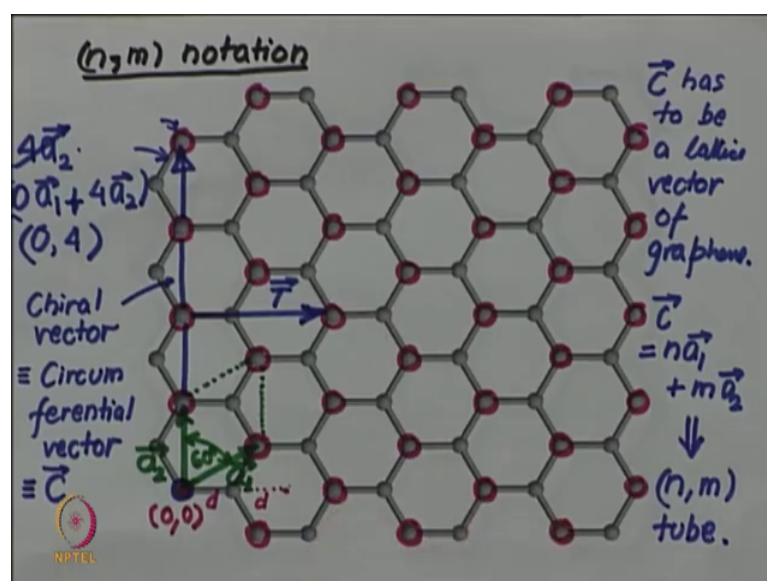 (n,m) notation
4a⃗₂.
(0a⃗₁ + 4a⃗₂)
(0, 4)
Chiral
vector
≡ Circum
ferential
vector
≡ C⃗
T⃗
a⃗₂
60°
a⃗₁
(0,0)
d
d
C⃗ has
to be
a lattice
vector
of
graphene.
C⃗
= na⃗₁
+ ma⃗₂
⇓
(n,m)
tube.
NPTEL